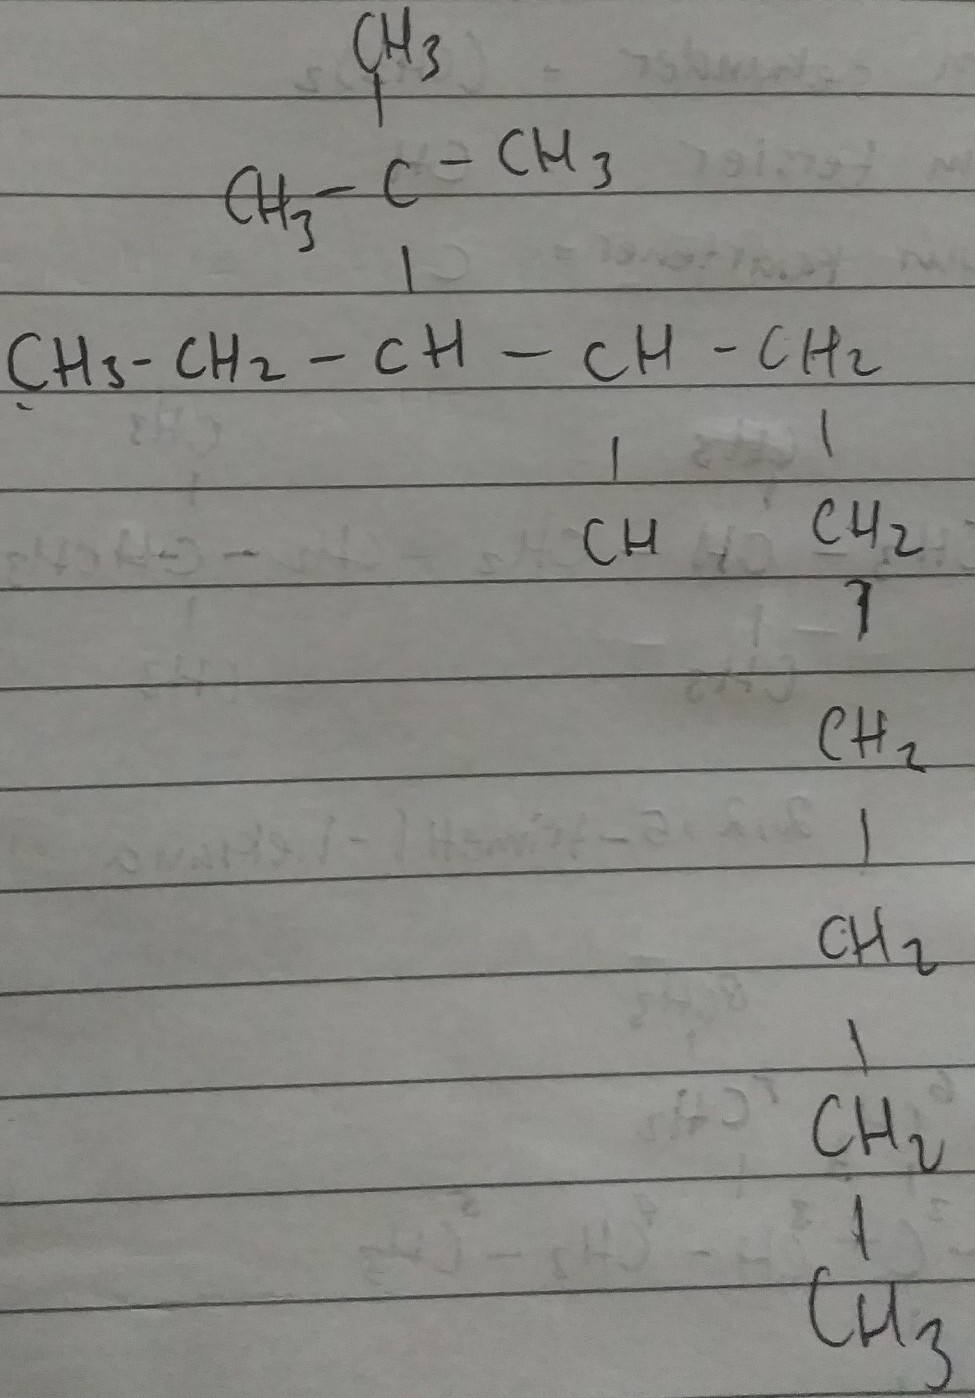 CH3
CH3 - C - CH3
CH3 - CH2 - CH - CH - CH2
CH CH2
CH2
CH2
CH2
CH3